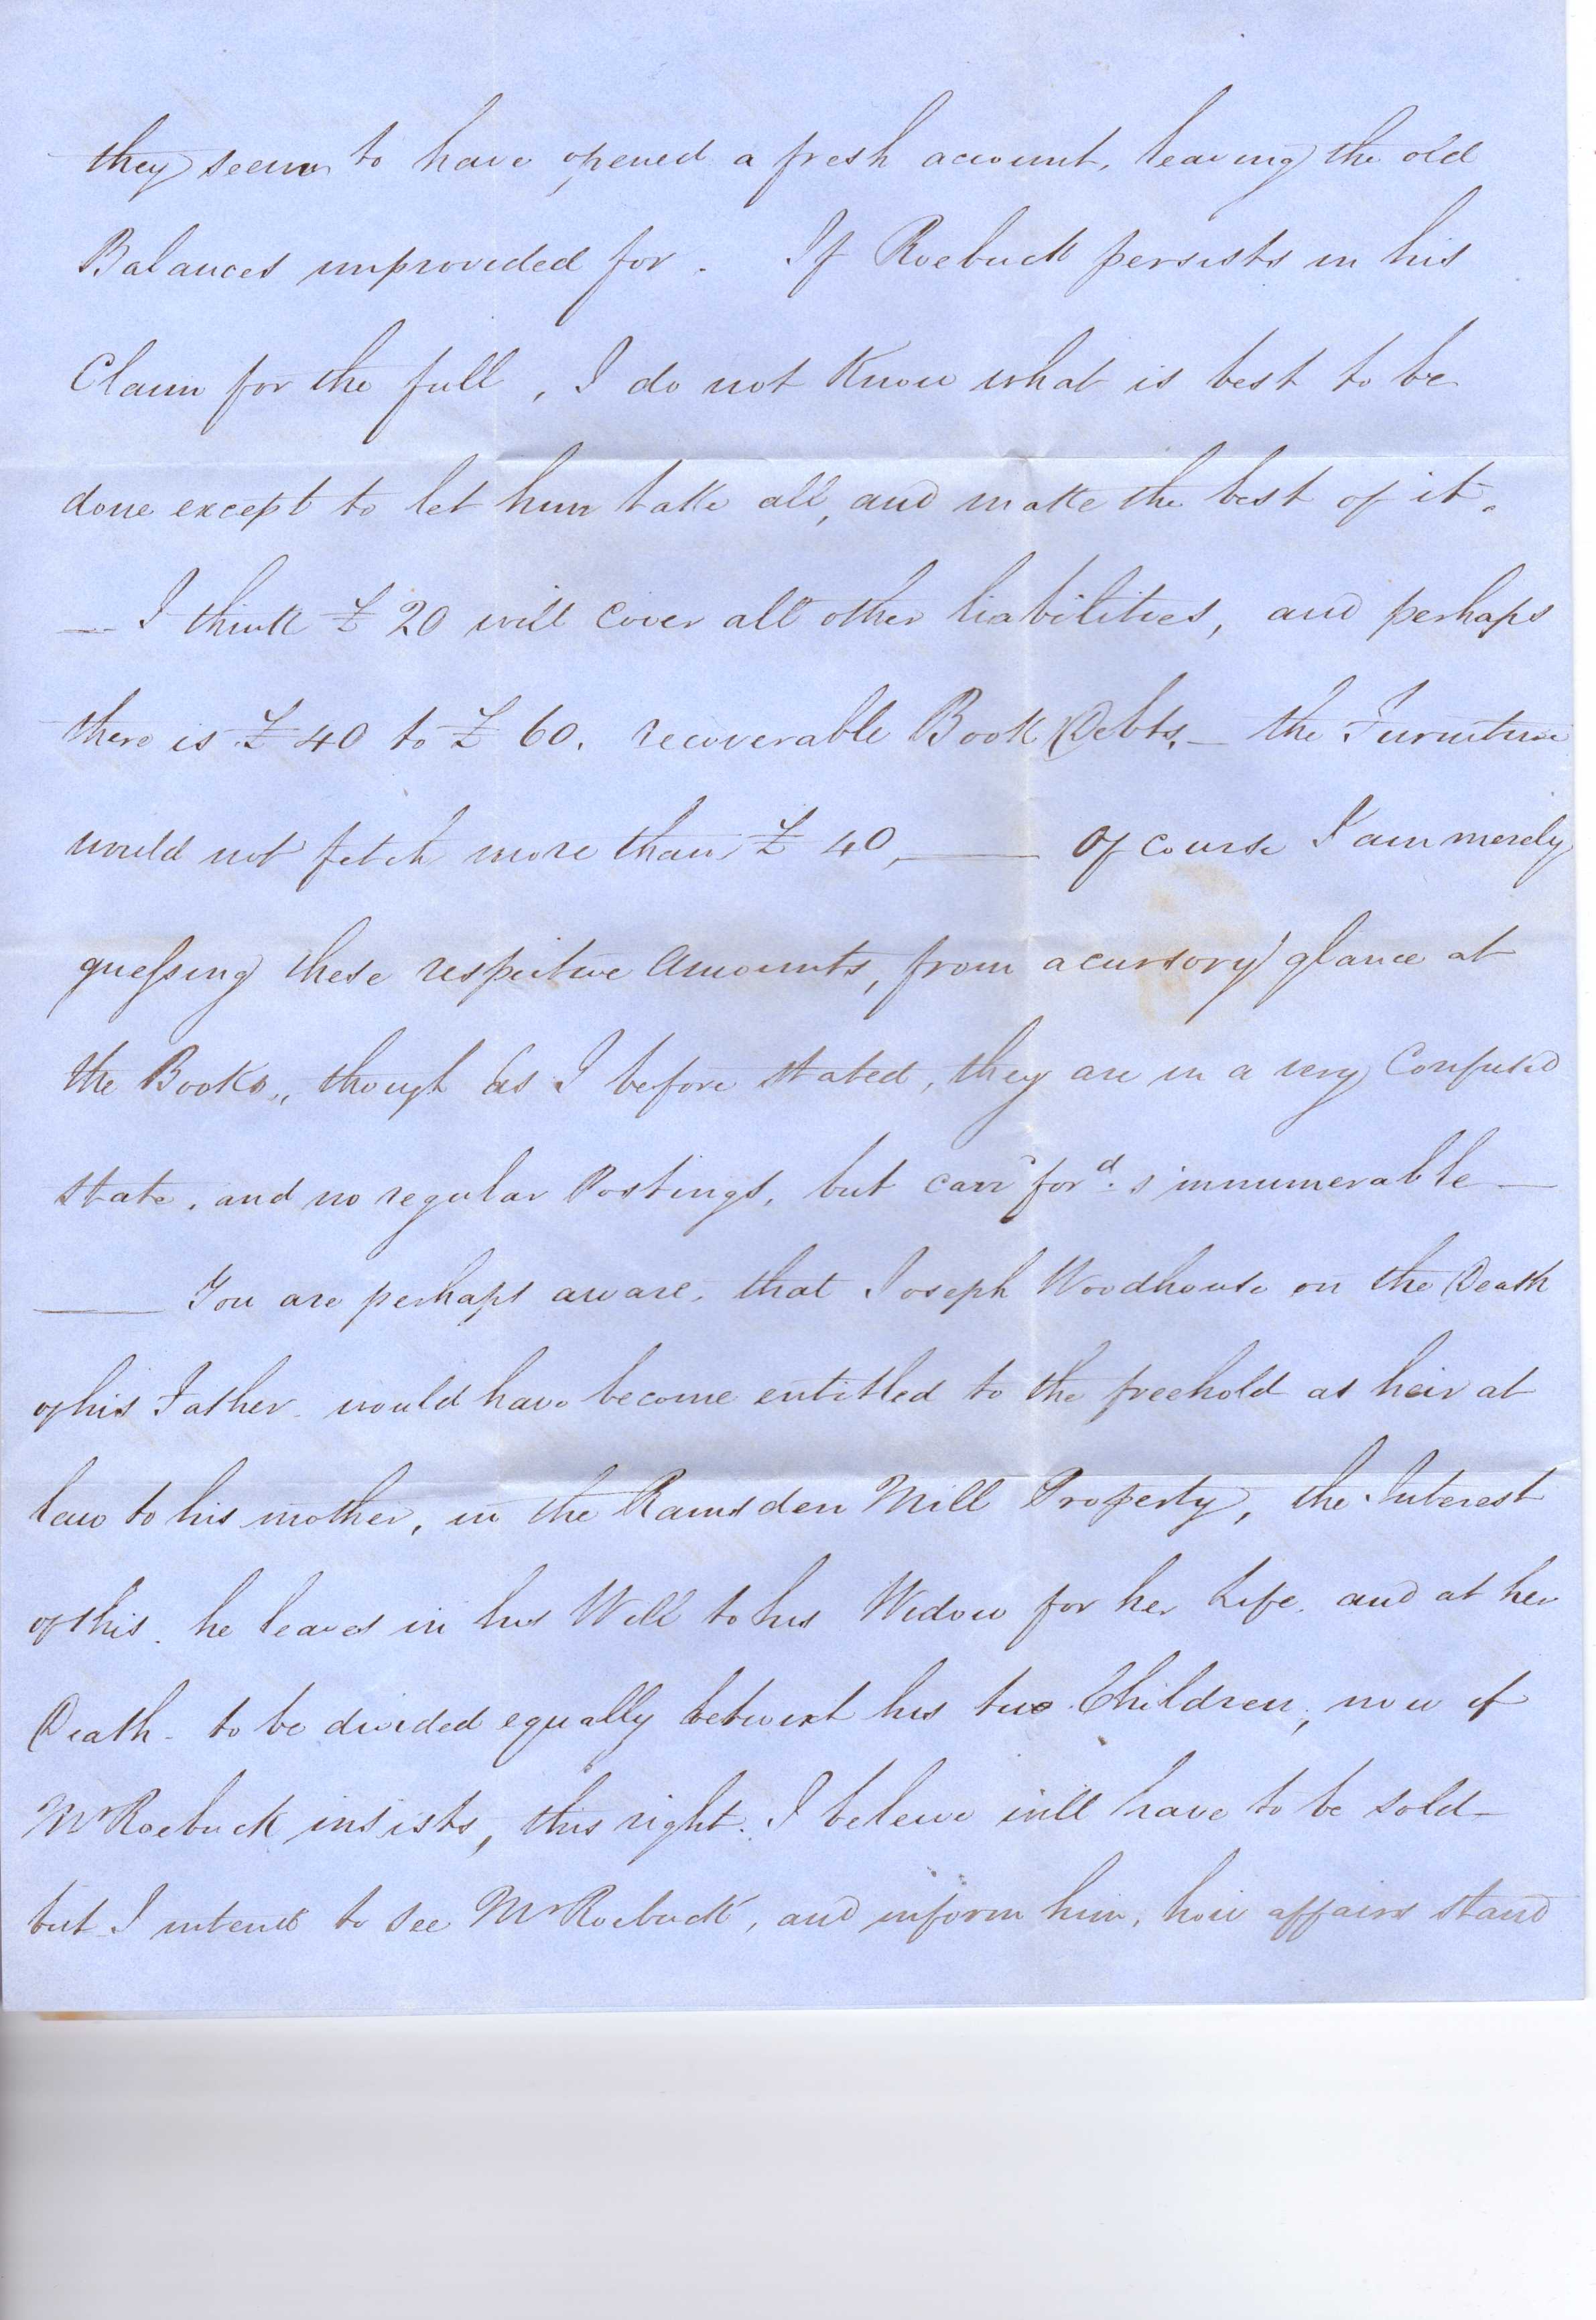 they seem to have opened a fresh account, leaving the old
Balances unprovided for. If Roebuck persists in his
Claim for the full, I do not Know what is best to be
done except to let him take all, and make the best of it.
— I think £ 20 will cover all other liabilities, and perhaps
there is £ 40 to £ 60. recoverable Book Debts, — the Furniture
would not fetch more than £ 40, — of course I am merely
guessing these respective Amounts, from a cursory glance at
the Books,, though as I before stated, they are in a very Confused
state, and no regular Postings, but carr^d for^d.s innumerable —
— You are perhaps aware, that Joseph Woodhouse on the Death
of his Father would have become entitled to the freehold as heir at
law to his mother, in the Ramsden Mill Property, the Interest
of this. he leaves in his Will to his Widow for her Life. and at her
Death - to be divided equally betwixt his two Children, now if
Mr Roebuck insists, this right. I beleive will have to be sold —
but I intend to see Mr Roebuck, and inform him, how affairs stand